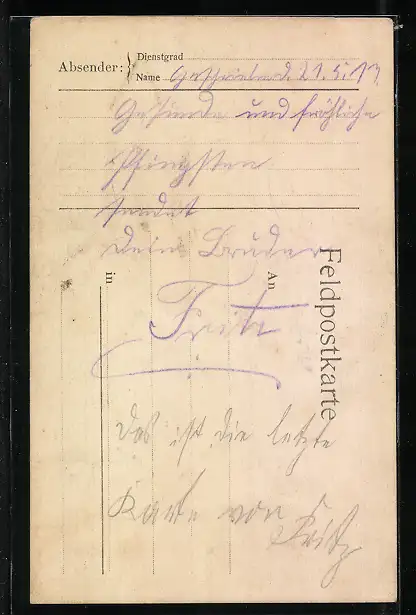 Dienstgrad
Absender:
Name Geschrieben d. 21.5.17.
Gesunde und fröhliche
Pfingsten
sendet
Dein Bruder
Fritz
Feldpostkarte
An
in
Das ist die letzte
Karte von
Fritz